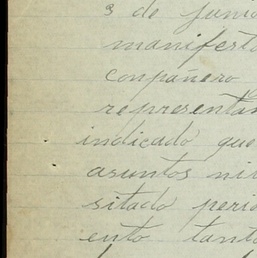 3 de junio
manifesta
conpañero
representan
indicado que
asuntos
sitado perio
ento tanto